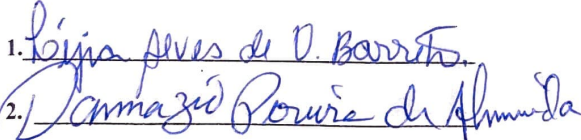 1. Lígia Alves de O. Barreto.
2. Damazio Pereira de Almeida